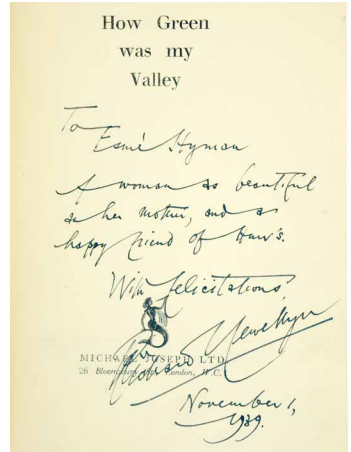 How Green
was my
Valley
To
Esmé Hyman
A woman as beautiful
as her mother, and a
happy friend of Huw's.
With felicitations,
Richard Llewellyn
MICHAEL JOSEPH LTD.
26 Bloomsbury London, W.C.1
November 1,
1939.